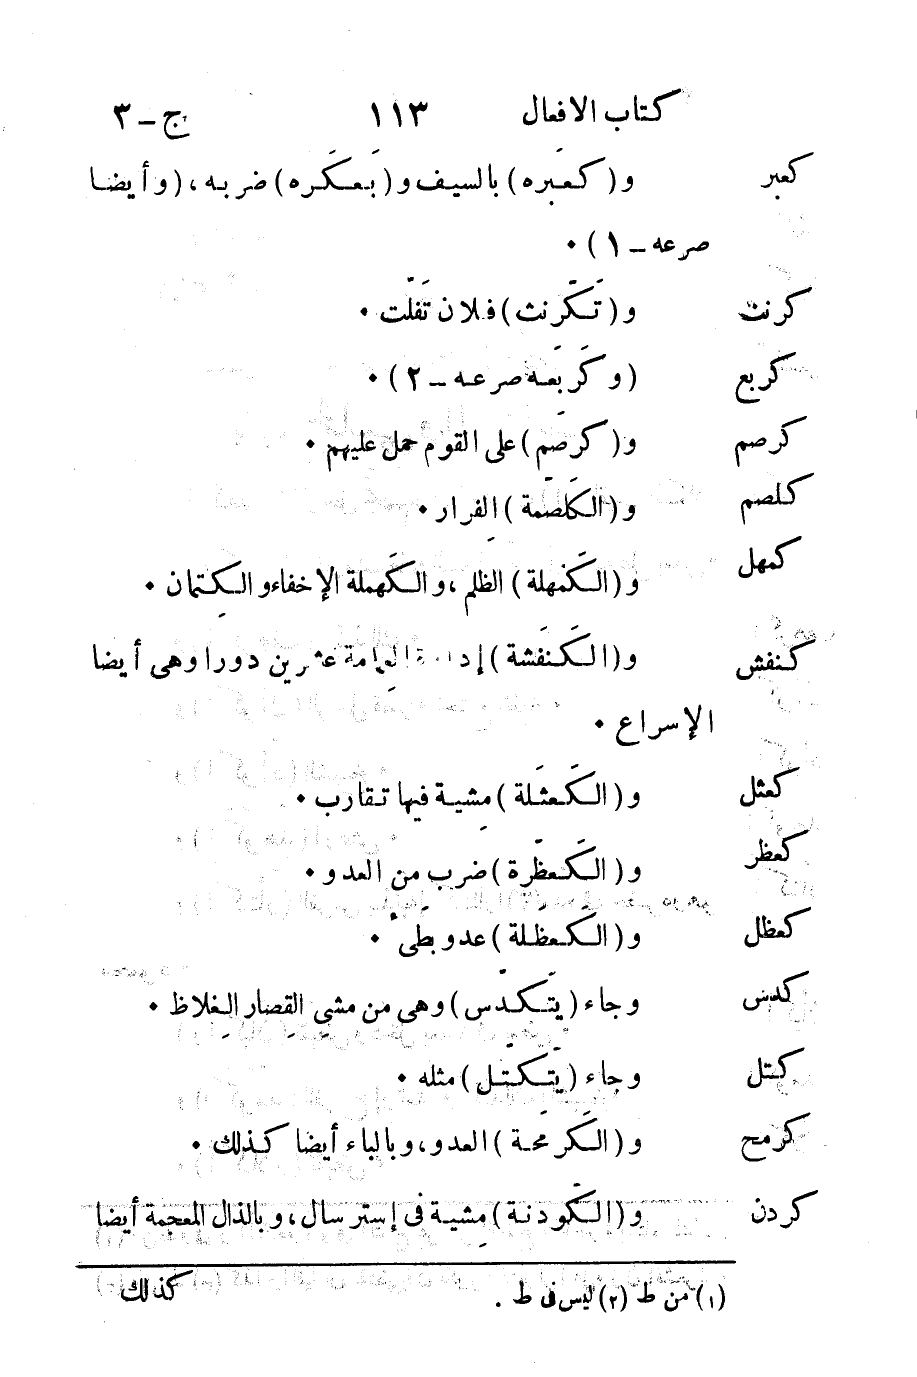 كتاب الافعال ١١٣ ج - ٣
كعبر و (كَعْبَره) بالسيف و (بَعكَره) ضربه، (وأيضا
صرعه - ١) ٠
كرنث و (تَكَرْنث) فلان تَفَلّت ٠
كربع (وكَرْبَعه صرعه - ٢) ٠
كرصم و (كرصَم) على القوم حمل عليهم ٠
كلصم و (الكَلْصَمة) الفرار ٠
كمهل و (الكَمْهلة) الظلم، والكَهْملة الإخفاء والكِتمان ٠
كنفش و (الكَنْفَشة) إدارة العِمامة عشرين دورا وهى أيضا
الإسراع ٠
كعثل و (الكَعْثَلة) مِشية فيها تقارب ٠
كعظر و (الكَعْظَرة) ضرب من العدو ٠
كعظل و (الكَعْظَلة) عدو بطئ ٠
كدس وجاء (يتَكَدّس) وهى من مشي القِصار الغِلاظ ٠
كتل وجاء (يَتَكَتّل) مثله ٠
كرمح و (الكَرْمحَة) العدو، وبالباء أيضا كذلك ٠
كردن و (الكَودَنة) مِشية فى إستر سال، وبالذال المعجمة أيضا
كذلك
(١) من ط (٢) ليس فى ط .